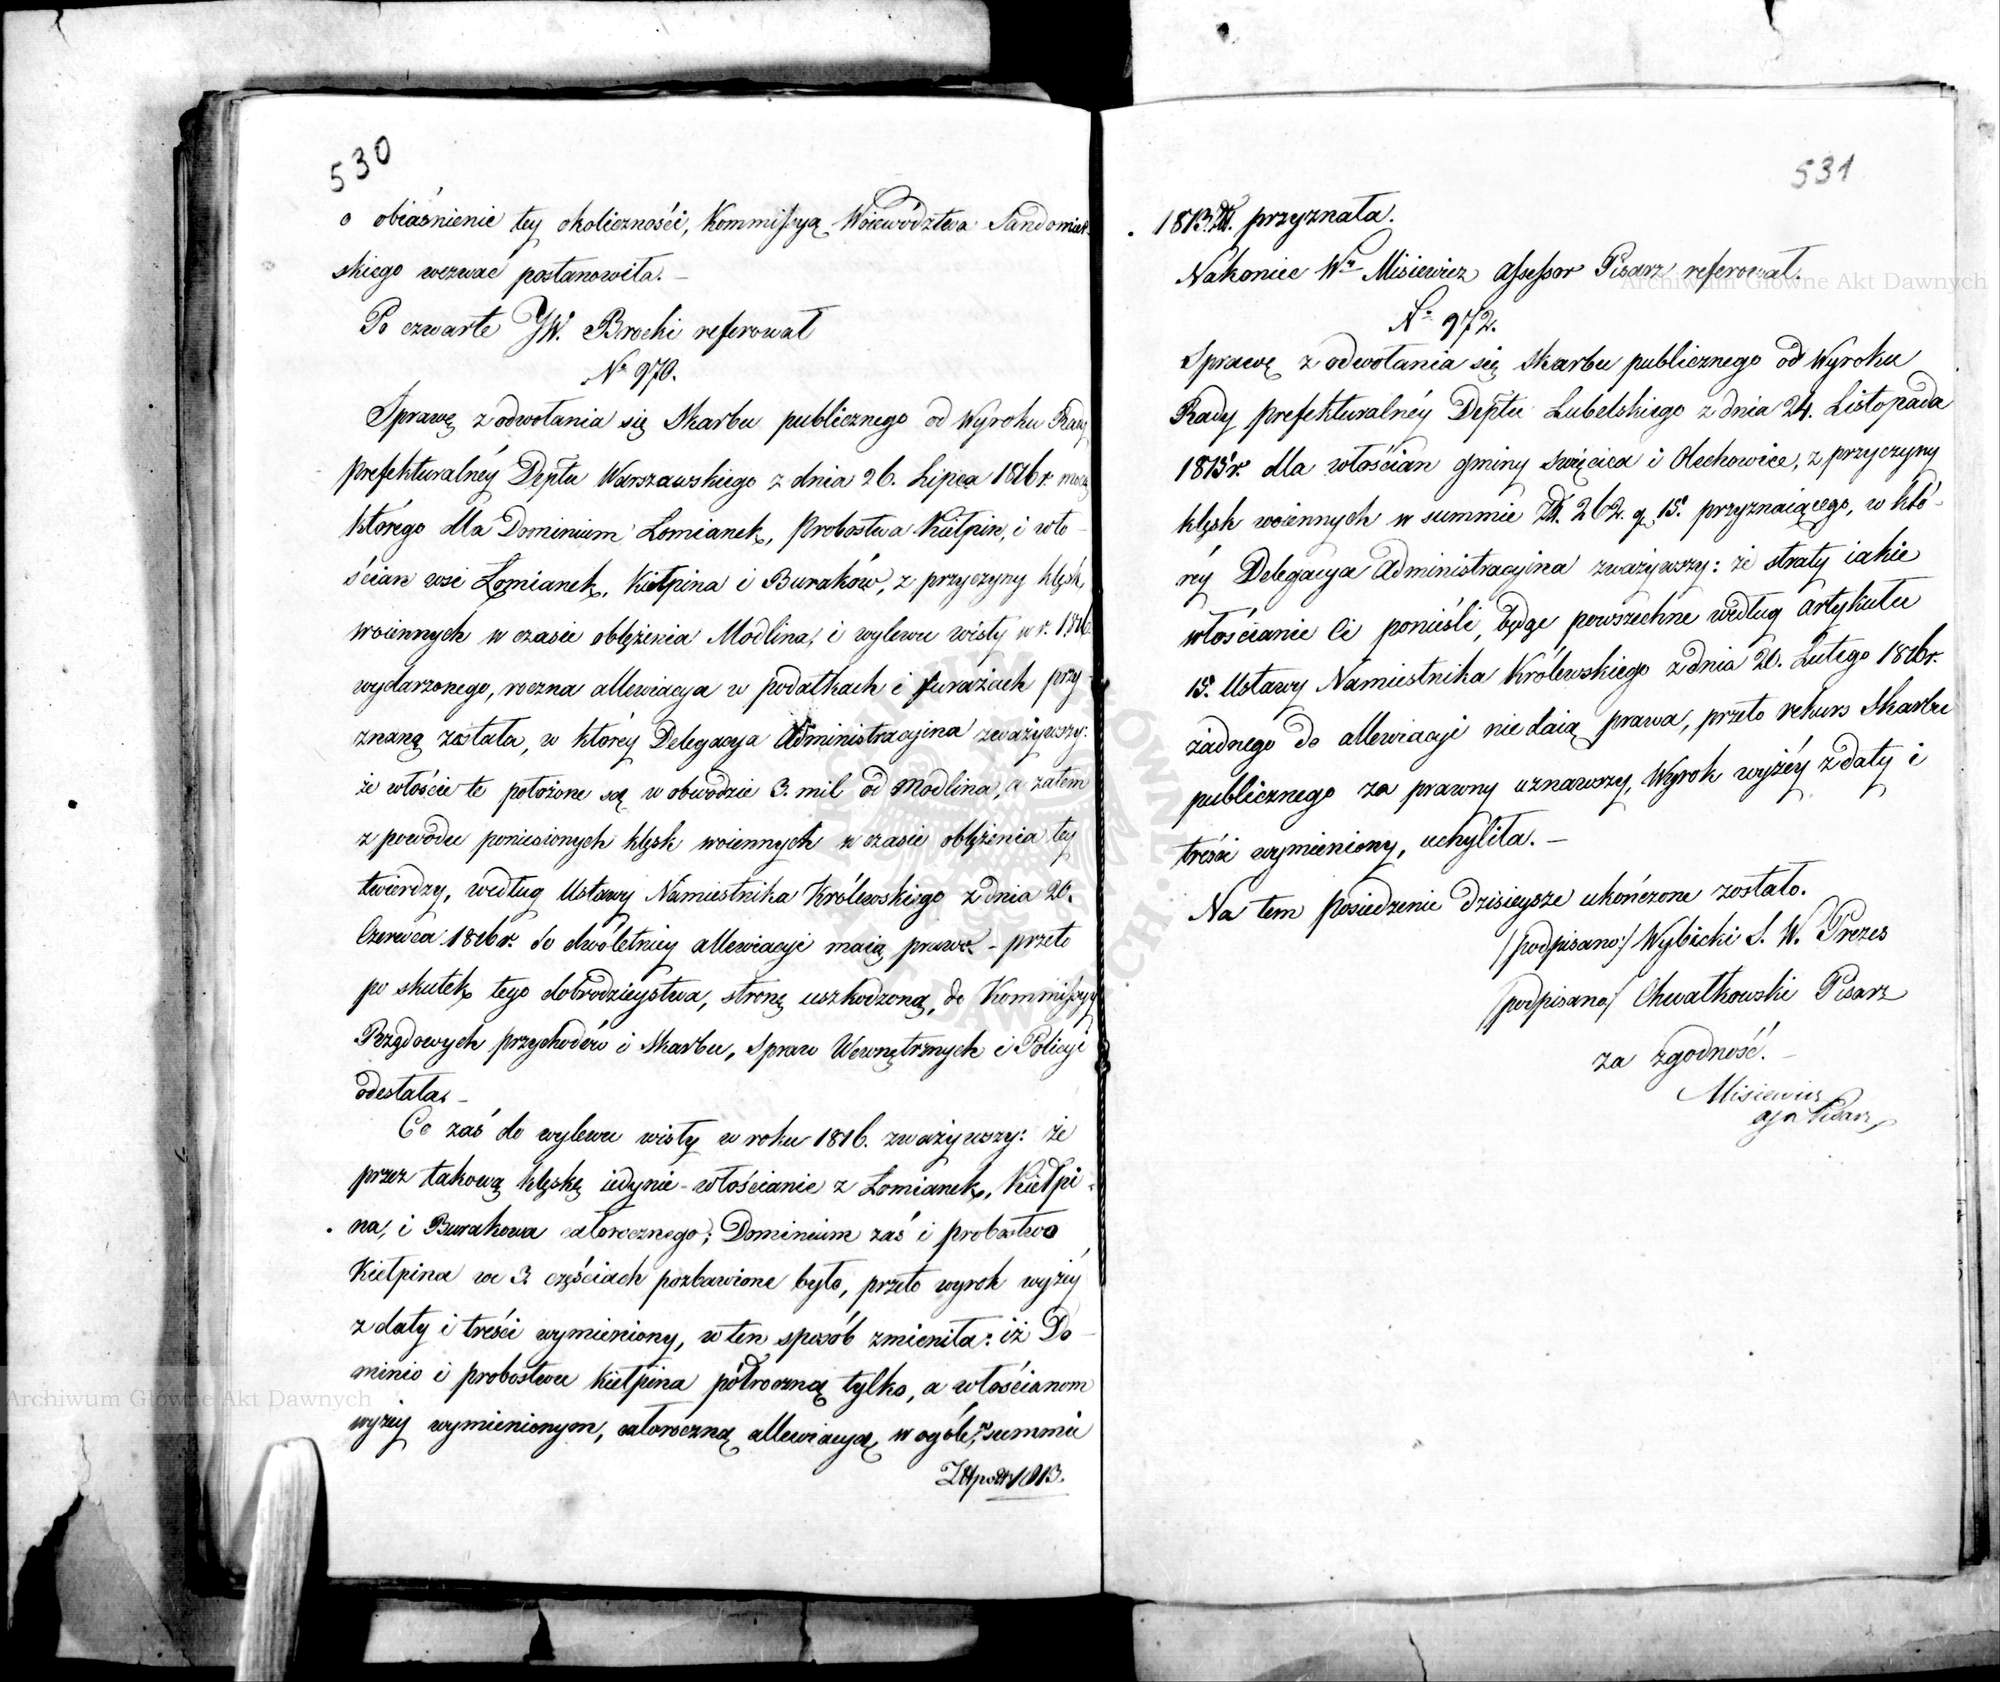 530
o obiaśnienie tey okoliczności, Kommissyą Woiewództwa Sandomier-
skiego wezwać postanowiła. –
Po czwarte JW. Brocki referował
No 970.
Sprawę z odwołania się Skarbu publicznego od Wyroku Rady
prefekturalnéy Deptu Warszawskiego z dnia 26. Lipca 1816 r. mocą
którego dla Dominium Łomianek, Probostwa Kiełpin, i wło-
ścian wsi Łomianek, Kiełpina i Buraków, z przyczyny klęsk
woiennych w czasie oblężenia Modlina, i wylewu wisły w r. 1816
wydarzonego, roczna allewiacya w podatkach i furażach przy-
znaną została, w któréy Delegacya Administracyina zważywszy:
że włoście te położone są w obwodzie 3. mil od Modlina, a zatem
z powodu poniesionych klęsk woiennych w czasie oblężenia tey
twierdzy, według Ustawy Namiestnika Królewskiego z dnia 20.
Czerwca 1816 r. do dwoletniey allewiacyi maią prawo – przeto
po skutek tego dobrodzieystwa, stronę uszkodzoną, do Kommissyy
Rządowych przychodów i Skarbu, Spraw Wewnętrznych i Policyi
odesłała. –
Co zaś do wylewu wisły w roku 1816. zważywszy: że
przez takową klęskę iedynie włościanie z Łomianek, Kiełpi-
na, i Burakowa całorocznego; Dominium zaś i probostwo
Kiełpina w 3. częściach pozbawione było, przeto wyrok wyżéy
z daty i treści wymieniony, w ten sposób zmieniła: iż Do-
minio i probostwu Kiełpina półroczną tylko, a włościanom
wyżey wymienionym, całoroczną allewiacyą w ogóle, w summie
Złtpolk 1813.
531
1813. Zł. przyznała.
Nakoniec Wny Misiewicz Assessor Pisarz referował.
No 972.
Sprawę z odwołania się Skarbu publicznego od Wyroku
Rady prefekturalnéy Deptu Lubelskiego z dnia 24. Listopada
1815 r. dla włościan gminy Swięcica i Olechowice, z przyczyny
klęsk woiennych w summie Zł. 262. g. 15. przyznaiącego, w któ-
réy Delegacya Administracyina zważywszy: że straty iakie
włościanie Ci ponieśli, będąc powszechne według artykułu
15. Ustawy Namiestnika Królewskiego z dnia 20. Lutego 1816 r.
żadnego do allewiacyi nie daią prawa, przeto rekurs Skarbu
publicznego za prawny uznawszy, Wyrok wyżéy z daty i
treści wymieniony, uchyliła. –
Na tem posiedzenie dzisieysze ukończone zostało.
/podpisano/ Wybicki S. W. Prezes
/podpisano/ Chwałkowski Pisarz
za zgodność. –
Misiewicz
Pisarz
Archiwum Główne Akt Dawnych
Archiwum Główne Akt Dawnych